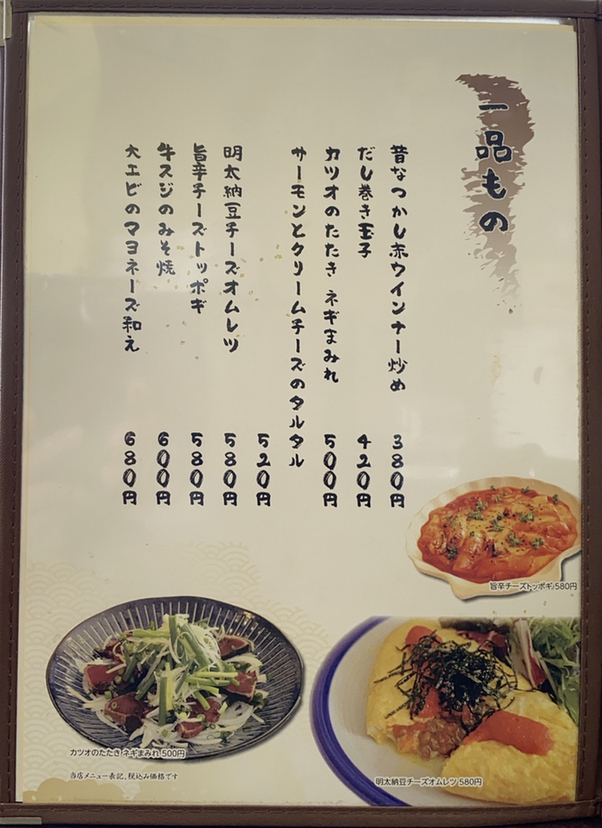 一品もの
昔なつかし赤ウインナー炒め 380円
だし巻き玉子 420円
カツオのたたき ネギまみれ 500円
サーモンとクリームチーズのタルタル
520円
明太納豆チーズオムレツ 580円
旨辛チーズトッポギ 580円
牛スジのみそ焼 600円
大エビのマヨネーズ和え 680円
旨辛チーズトッポギ 580円
カツオのたたき ネギまみれ 500円
当店メニュー表記、税込み価格です
明太納豆チーズオムレツ 580円